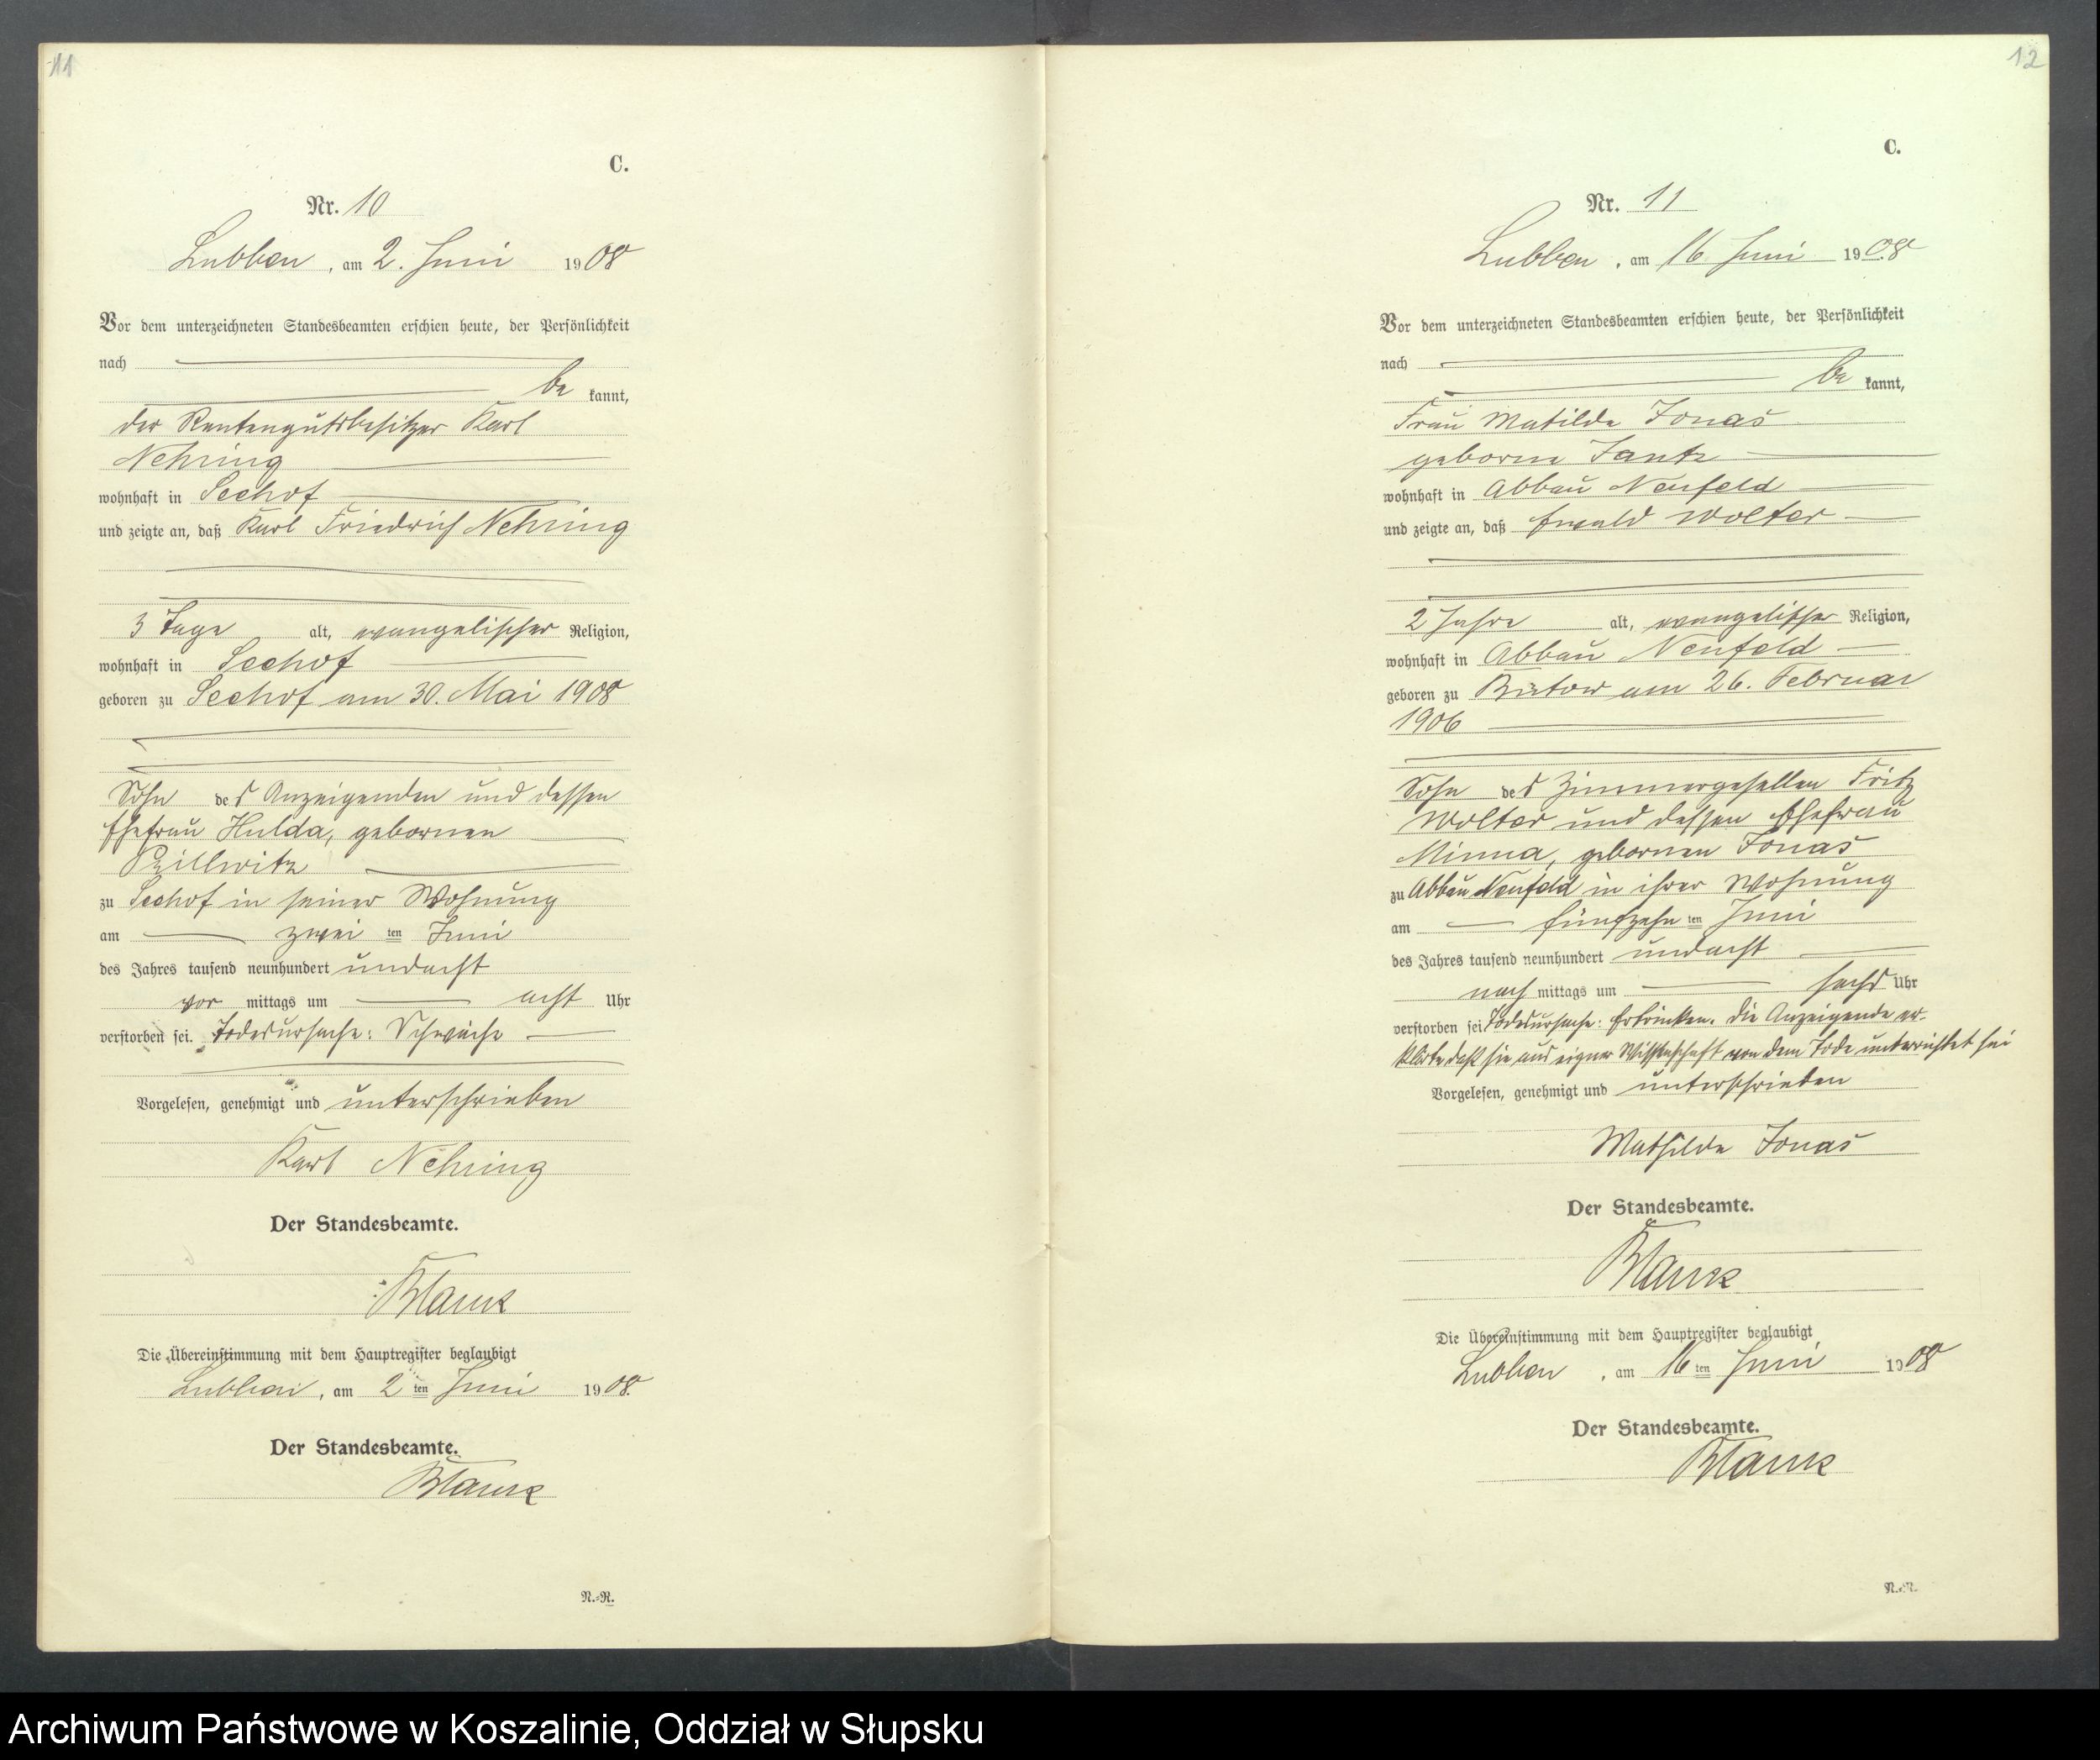 11
C.
Nr. 10
Lubben, am 2. Juni 1908
Vor dem unterzeichneten Standesbeamten erschien heute, der Persönlichkeit
nach
be kannt,
der Rentengutsbesitzer Karl
Nehring
wohnhaft in Seehof
und zeigte an, daß Karl Friedrich Nehring
3 Tage alt, evangelischer Religion,
wohnhaft in Seehof
geboren zu Seehof am 30. Mai 1908
Sohn des Anzeigenden und dessen
Ehefrau Hulda, gebornen
zu Seehof in seiner Wohnung
am zwei ten Juni
des Jahres tausend neunhundert undacht
vor mittags um acht Uhr
verstorben sei. Todesursache: Schwäche
Vorgelesen, genehmigt und unterschrieben
Karl Nehring
Der Standesbeamte.
Die Übereinstimmung mit dem Hauptregister beglaubigt
Lubben, am 2 ten Juni 1908.
Der Standesbeamte.
N.-R.
12
C.
Nr. 11
Lubben, am 16. Juni 1908
Vor dem unterzeichneten Standesbeamten erschien heute, der Persönlichkeit
nach
be kannt,
Frau Matilde Jonas
geborne Jantz
wohnhaft in Abbau Neufeld
und zeigte an, daß Ewald Wolter
2 Jahre alt, evangelischer Religion,
wohnhaft in Abbau Neufeld
geboren zu Bütow am 26. Februar
1906
Sohn des Zimmergesellen Fritz
Wolter und dessen Ehefrau
Minna, gebornen Jonas
zu Abbau Neufeld in ihrer Wohnung
am fünfzehn ten Juni
des Jahres tausend neunhundert undacht
nach mittags um sechs Uhr
verstorben sei Todesursache: Ertrinken. Die Anzeigende er-
klärte daß sie aus eigner Wissenschaft von dem Tode unterrichtet sei
Vorgelesen, genehmigt und unterschrieben
Mathilde Jonas
Der Standesbeamte.
Die Übereinstimmung mit dem Hauptregister beglaubigt
Lubben, am 16 ten Juni 1908
Der Standesbeamte.
N.-R.
Archiwum Państwowe w Koszalinie, Oddział w Słupsku